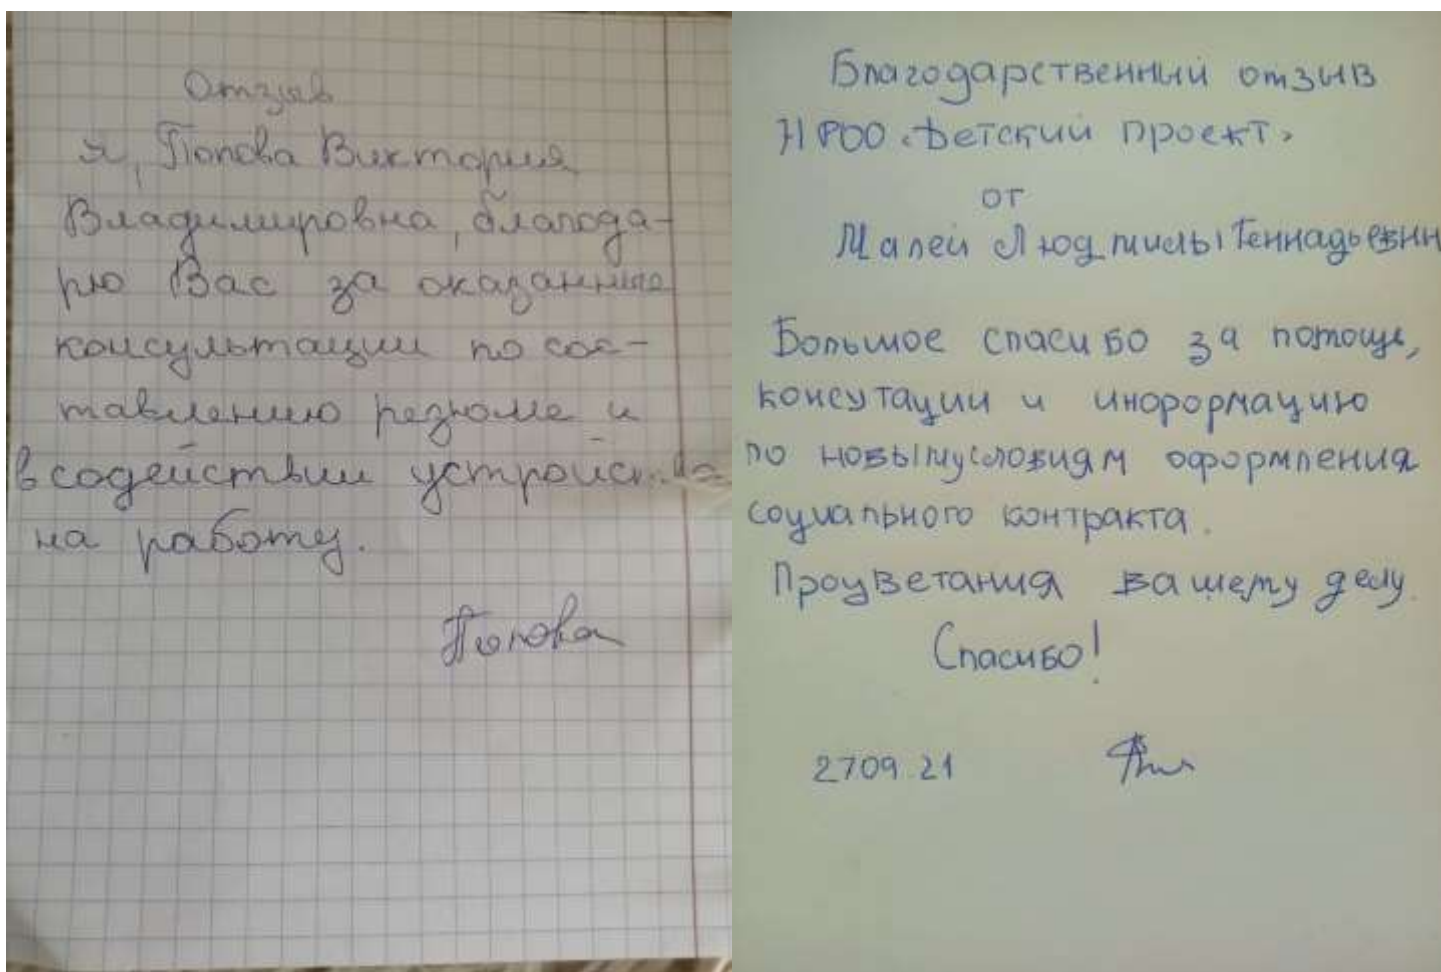 Отзыв
я, Попова Виктория
Владимировна, благода-
рю Вас за оказанные
консультации по сос-
тавлению резюме и
в содействии
на работу.
Попова
Благодарственный отзыв
НРОО «Детский проект»
от
Малей Людмилы Геннадьевн
Большое спасибо за помощь,
консутации и инормацию
по новым условиям оформления
социального контракта.
Процветания вашему делу.
Спасибо!
27 09 21